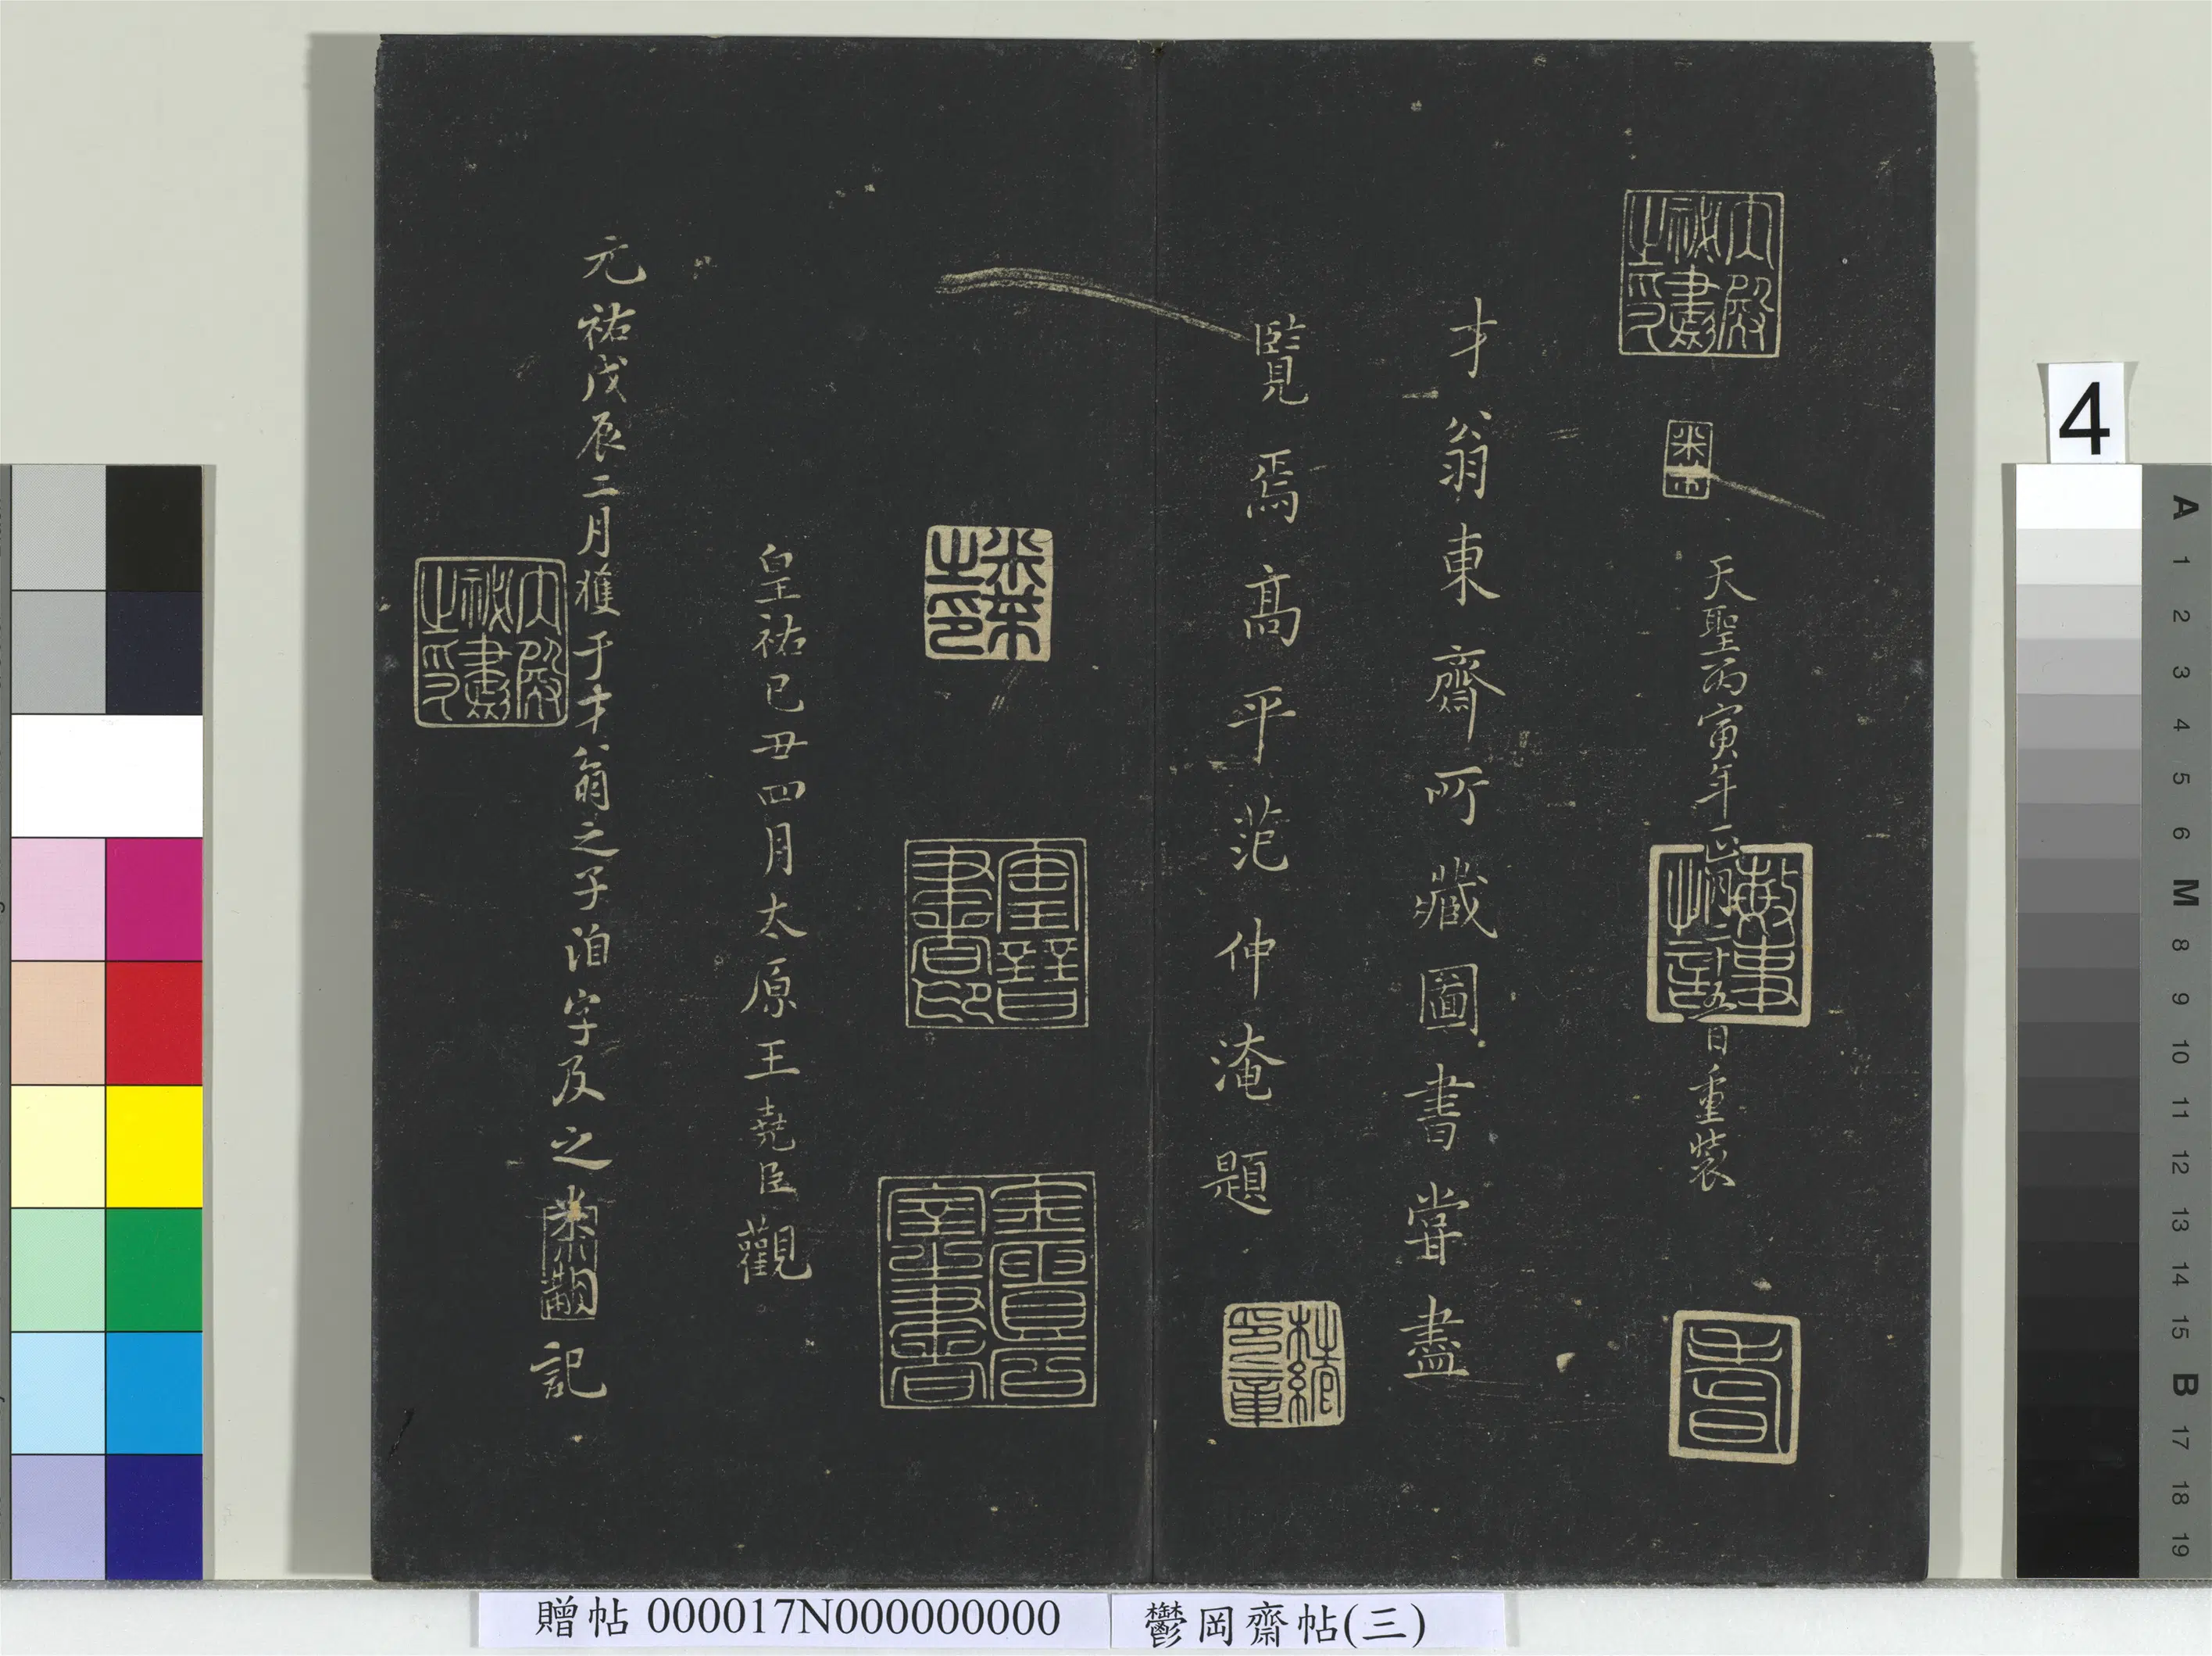 天聖丙寅年正月二十五日重裝
才翁東齋所藏圖書嘗盡
覽焉高平范仲淹題
皇祐己丑四月太原王堯臣觀
元祐戊辰二月獲于才翁之子洎字及之米黻記
米芾
米芾之印
4
A 1 2 3 4 5 6 M 8 9 10 11 12 13 14 15 B 17 18 19
贈帖 000017N000000000
鬱岡齋帖(三)